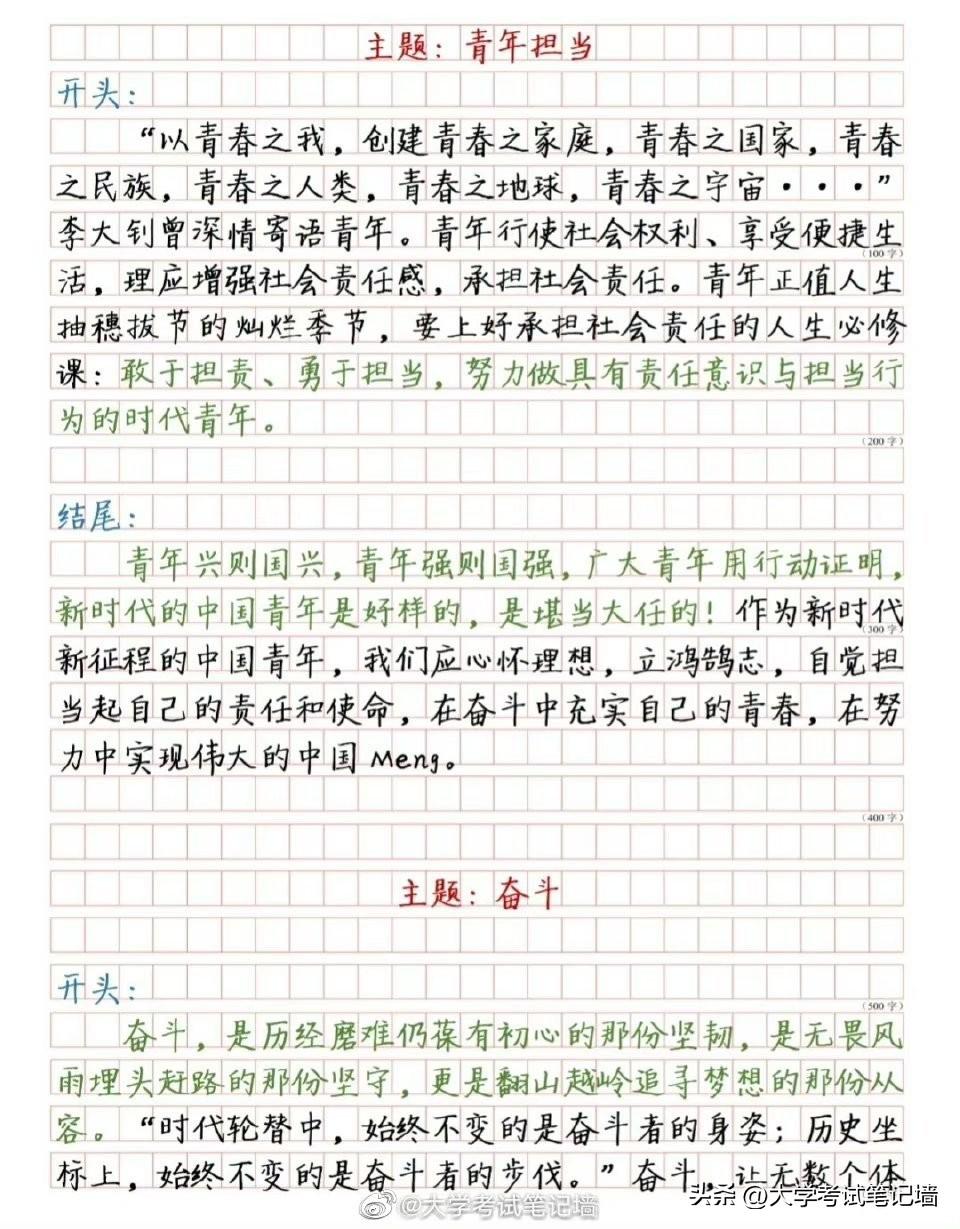 主题：青年担当
开头：
“以青春之我，创建青春之家庭，青春之国家，青春
之民族，青春之人类，青春之地球，青春之宇宙···”
李大钊曾深情寄语青年。青年行使社会权利、享受便捷生
（100字）
活，理应增强社会责任感，承担社会责任。青年正值人生
抽穗拔节的灿烂季节，要上好承担社会责任的人生必修
课：敢于担责、勇于担当，努力做具有责任意识与担当行
为的时代青年。
（200字）
结尾：
青年兴则国兴，青年强则国强，广大青年用行动证明，
新时代的中国青年是好样的，是堪当大任的！作为新时代
（300字）
新征程的中国青年，我们应心怀理想，立鸿鹄志，自觉担
当起自己的责任和使命，在奋斗中充实自己的青春，在努
力中实现伟大的中国Meng。
（400字）
主题：奋斗
开头：
（500字）
奋斗，是历经磨难仍葆有初心的那份坚韧，是无畏风
雨埋头赶路的那份坚守，更是翻山越岭追寻梦想的那份从
容。“时代轮替中，始终不变的是奋斗者的身姿；历史坐
标上，始终不变的是奋斗者的步伐。”奋斗，让无数个体
@大学考试笔记墙
头条 @大学考试笔记墙